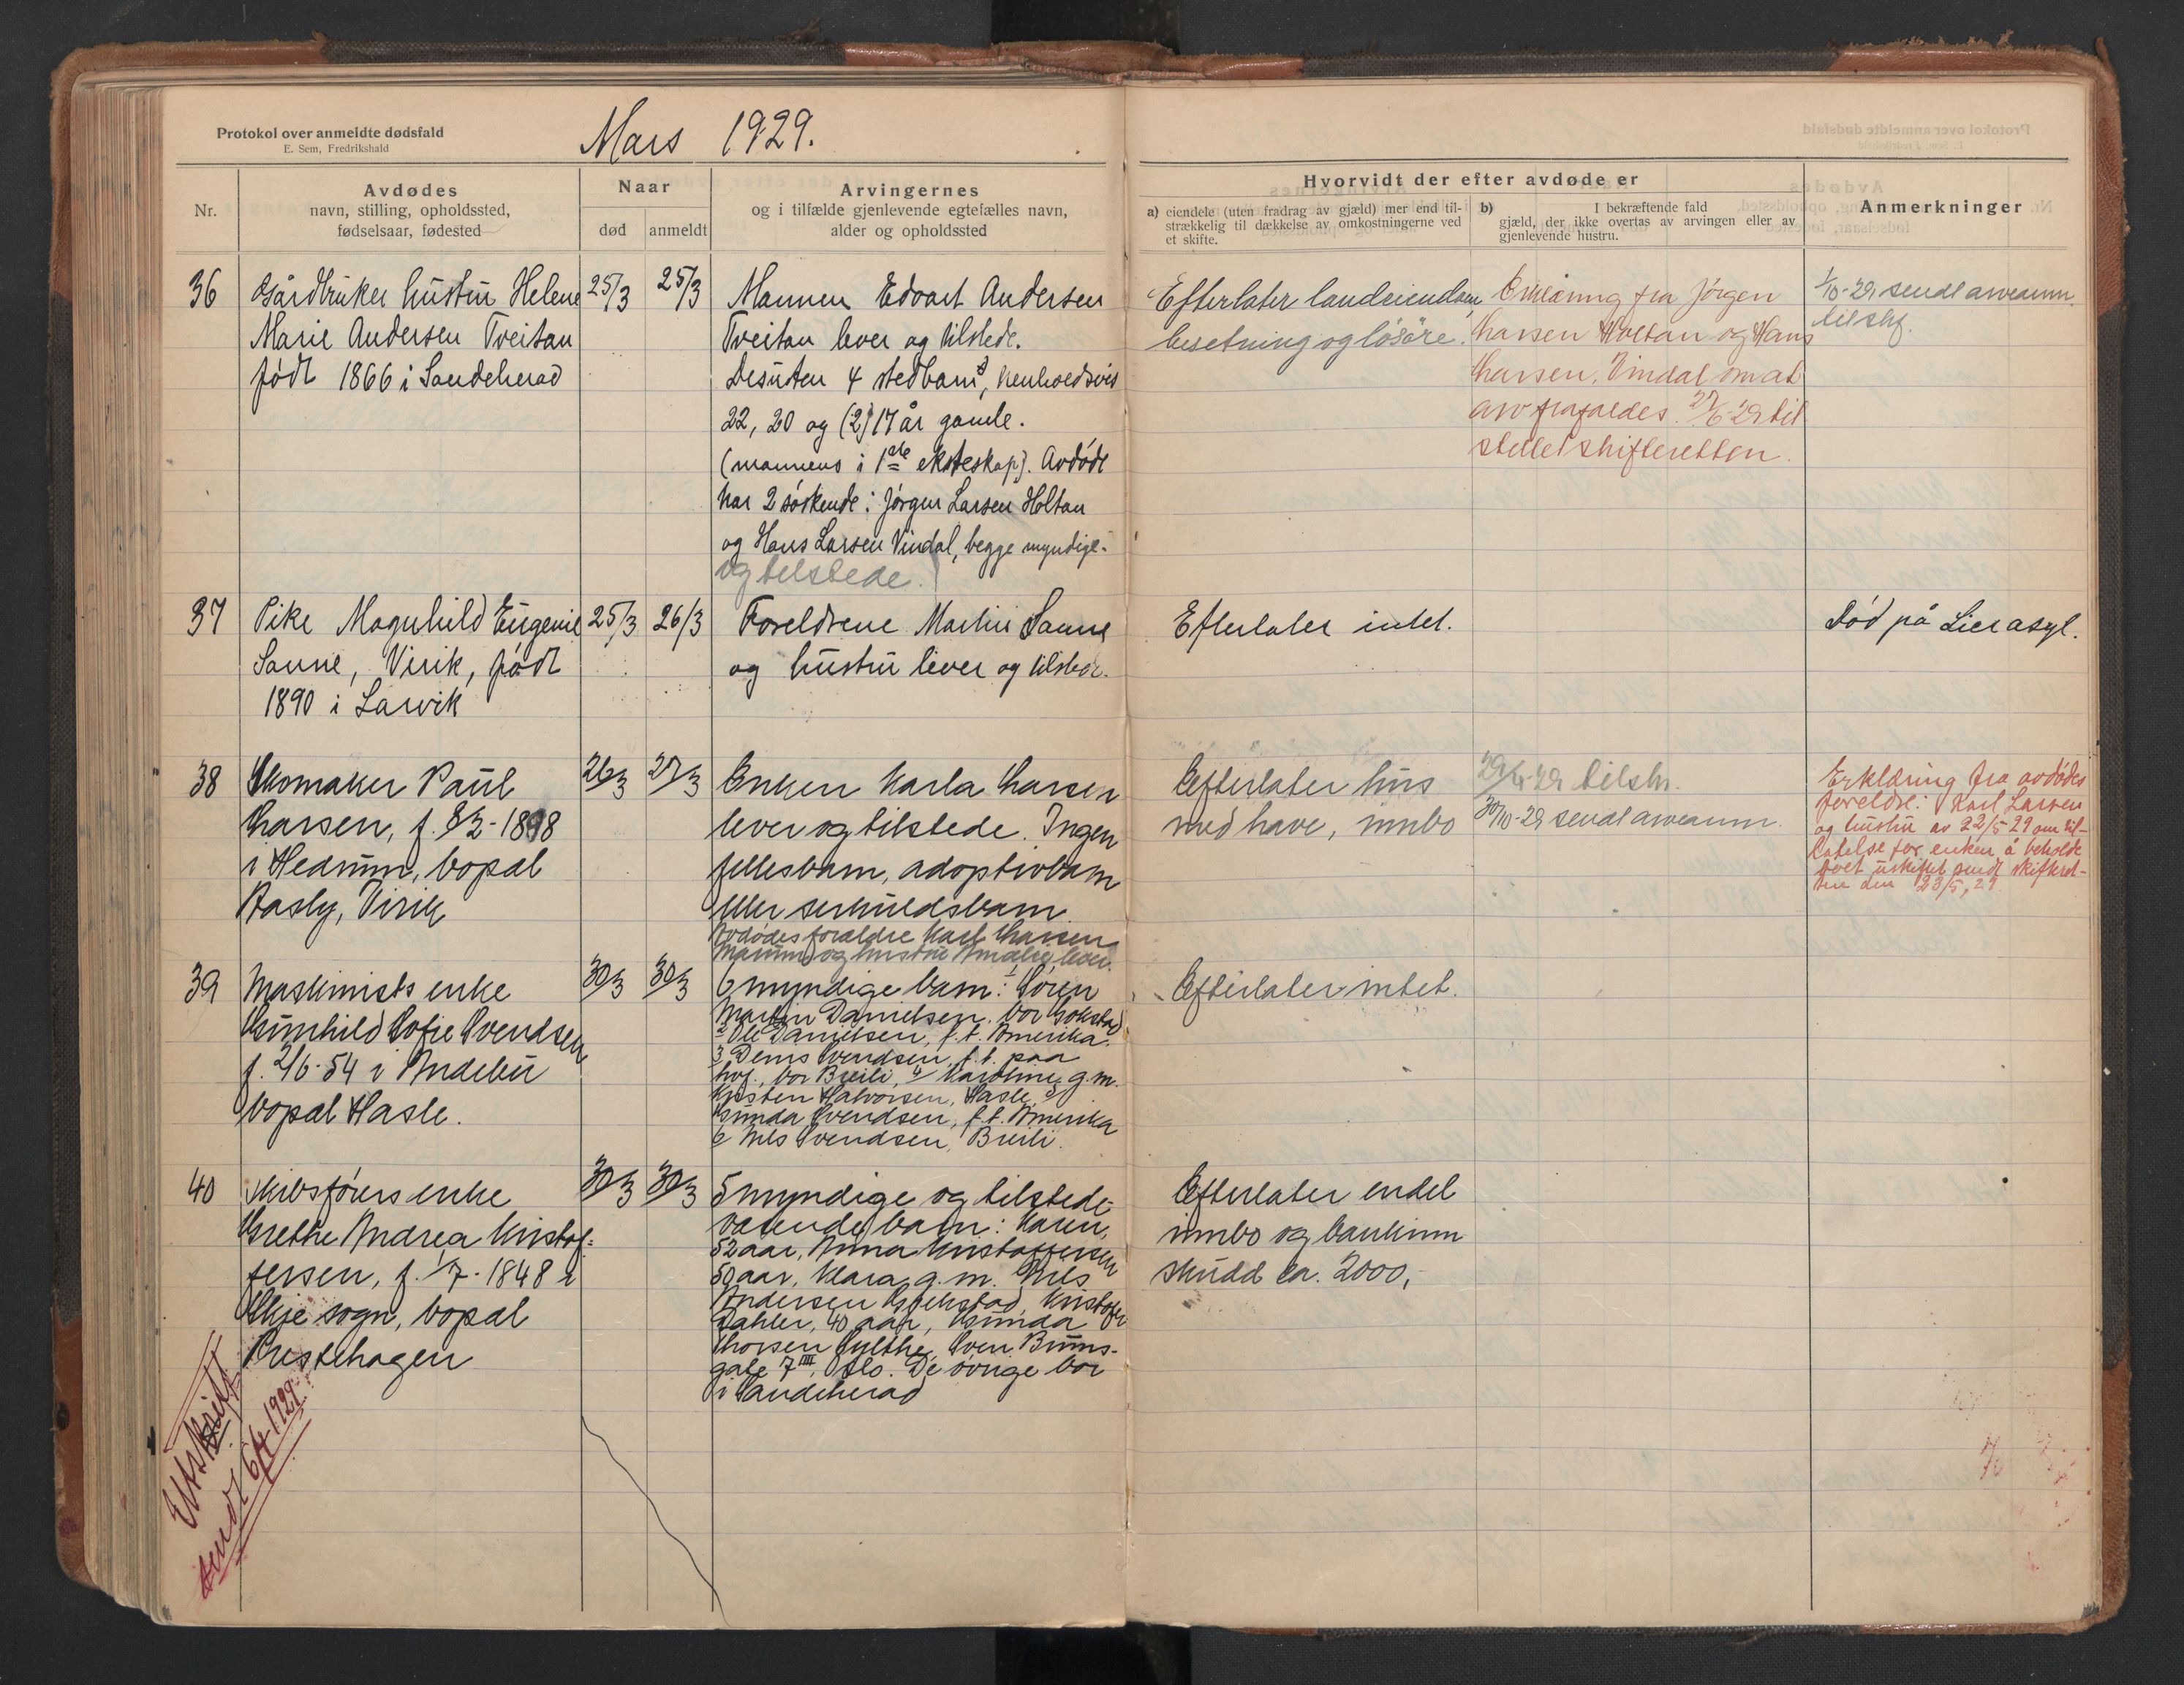 Protokol over anmeldte dødsfald
E. Sem, Fredrikshald
Mars 1929.
Nr.
Avdødes
navn, stilling, opholdssted,
fødselsaar, fødested
Naar
død
anmeldt
Arvingernes
og i tilfælde gjenlevende egtefælles navn,
alder og opholdssted
Hvorvidt der efter avdøde er
a) eiendele (uten fradrag av gjæld) mer end til-
strækkelig til dækkelse av omkostningerne ved
et skifte.
b) I bekræftende fald
gjæld, der ikke overtas av arvingen eller av
gjenlevende hustru.
Anmerkninger
36
Gårdbruker hustru Helene
Marie Andersen Tveitan
født 1866 i Sandeherad
25/3
25/3
Mannen Edvart Andersen
Tveitan lever og tilstede.
Desuten 4 stedbarn, henholdsvis
22, 20 og (2) 17 år gamle.
(mannens i 1ste ekteskap). Avdøde
har 2 søskende: Jørgen Larsen Holtan
og Hans Larsen Vindal, begge myndige
og tilstede.
Efterlater landeiendom,
besetning og løsøre.
Erklæring fra Jørgen
Larsen Holtan og Hans
Larsen, Vindal om at
arv frafaldes. 27/6-29 til
stillet skifteretten.
1/10-29 sendt arveanm.
til skf.
37
Pike Magnhild Eugenie
Sanne, Virik, født
1890 i Larvik
25/3
26/3
Foreldrene Martin Sanne
og hustru lever og tilstede.
Efterlater intet.
Død på Lier asyl.
38
Skomaker Paul
Larsen, f. 8/2-1898
i Hedrum, bopæl
Råsly, Virik
26/3
27/3
Enken Karla Larsen
lever og tilstede. Ingen
fellesbarn, adoptivbarn
eller serkuldsbarn.
Avdødes foreldre Karl Larsen
og hustru Amalie lever.
Efterlater hus
med have, innbo
29/4-29 tilskr.
30/10-29 sendt arveanm.
Erklæring fra avdødes
foreldre: Karl Larsen
og hustru av 22/5 29 om til-
latelse for enken å beholde
boet uskiftet sendt skifteret-
ten den 23/5, 29
39
Maskinists enke
Gunhild Sofie Svendsen
f. 2/6-54 i Andebu
bopæl Hasle.
30/3
30/3
6 myndige barn: 1 Søren
Martin Danielsen, bor Gokstad
2 Ole Danielsen, f.t. Amerika.
3 Denis Svendsen, f.t. paa
hvf., bor Breili, 4 Karoline g.m.
Kristen Halvorsen, Hasle, 5
Gunda Svendsen, f.t. Amerika
6 Nils Svendsen, Breili.
Efterlater intet.
40
Skibsførers enke
Grethe Andrea Kristof-
fersen, f. 1/7-1848 i
Skje sogn, bopæl
Prestehagen
30/3
30/3
5 myndige og tilstede-
værende barn: Karen,
52 aar, Anna Kristoffersen
50 aar, Klara g.m. Nils
Andersen Gjekstad, Kristofer
Dahler, 40 aar, Gunda
Thorsen Sven Bruns-
gate 7 III, Oslo. De øvrige bor
i Sandeherad
Efterlater endel
innbo og bankinn
skudd ca. 2000,-
Utskrift
sendt 6/4 1929.